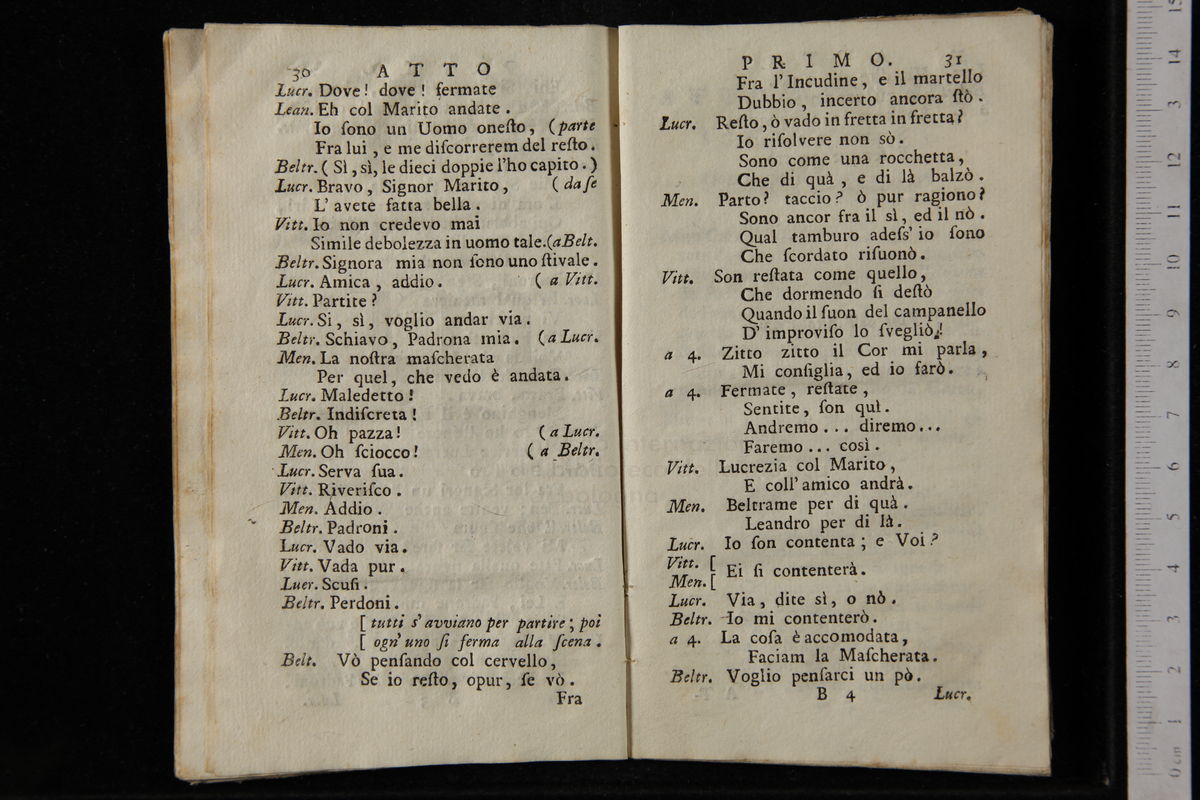 30 ATTO
Lucr. Dove! dove! fermate
Lean. Eh col Marito andate.
Io ſono un Uomo oneſto, (parte
Fra lui, e me diſcorrerem del reſto.
Beltr. ( Sì, sì, le dieci doppie l'ho capito. )
Lucr. Bravo, Signor Marito, ( da ſe
L' avete fatta bella.
Vitt. Io non credevo mai
Simile debolezza in uomo tale. (a Belt.
Beltr. Signora mia non ſono uno ſtivale.
Lucr. Amica, addio. ( a Vitt.
Vitt. Partite?
Lucr. Si, sì, voglio andar via.
Beltr. Schiavo, Padrona mia. (a Lucr.
Men. La noſtra maſcherata
Per quel, che vedo è andata.
Lucr. Maledetto!
Beltr. Indiſcreta!
Vitt. Oh pazza! ( a Lucr.
Men. Oh ſciocco! ( a Beltr.
Lucr. Serva ſua.
Vitt. Riveriſco.
Men. Addio.
Beltr. Padroni.
Lucr. Vado via.
Vitt. Vada pur.
Luer. Scuſi.
Beltr. Perdoni.
[ tutti s' avviano per partire; poi
[ ogn' uno ſi ferma alla ſcena.
Belt. Vò penſando col cervello,
Se io reſto, opur, ſe vò.
Fra
PRIMO. 31
Fra l'Incudine, e il martello
Dubbio, incerto ancora ſtò.
Lucr. Reſto, ò vado in fretta in fretta?
Io riſolvere non sò.
Sono come una rocchetta,
Che di quà, e di là balzò.
Men. Parto? taccio? ò pur ragiono?
Sono ancor fra il sì, ed il nò.
Qual tamburo adeſs' io ſono
Che ſcordato riſuonò.
Vitt. Son reſtata come quello,
Che dormendo ſi deſtò
Quando il ſuon del campanello
D' improviſo lo ſvegliò!
a 4. Zitto zitto il Cor mi parla,
Mi conſiglia, ed io farò.
a 4. Fermate, reſtate,
Sentite, ſon quì.
Andremo... diremo...
Faremo... così.
Vitt. Lucrezia col Marito,
E coll' amico andrà.
Men. Beltrame per di quà.
Leandro per di là.
Lucr. Io ſon contenta; e Voi?
Vitt. [
Men. [ Ei ſi contenterà.
Lucr. Via, dite sì, o nò.
Beltr. Io mi contenterò.
a 4. La coſa è accomodata,
Faciam la Maſcherata.
Beltr. Voglio penſarci un pò.
B 4 Lucr.